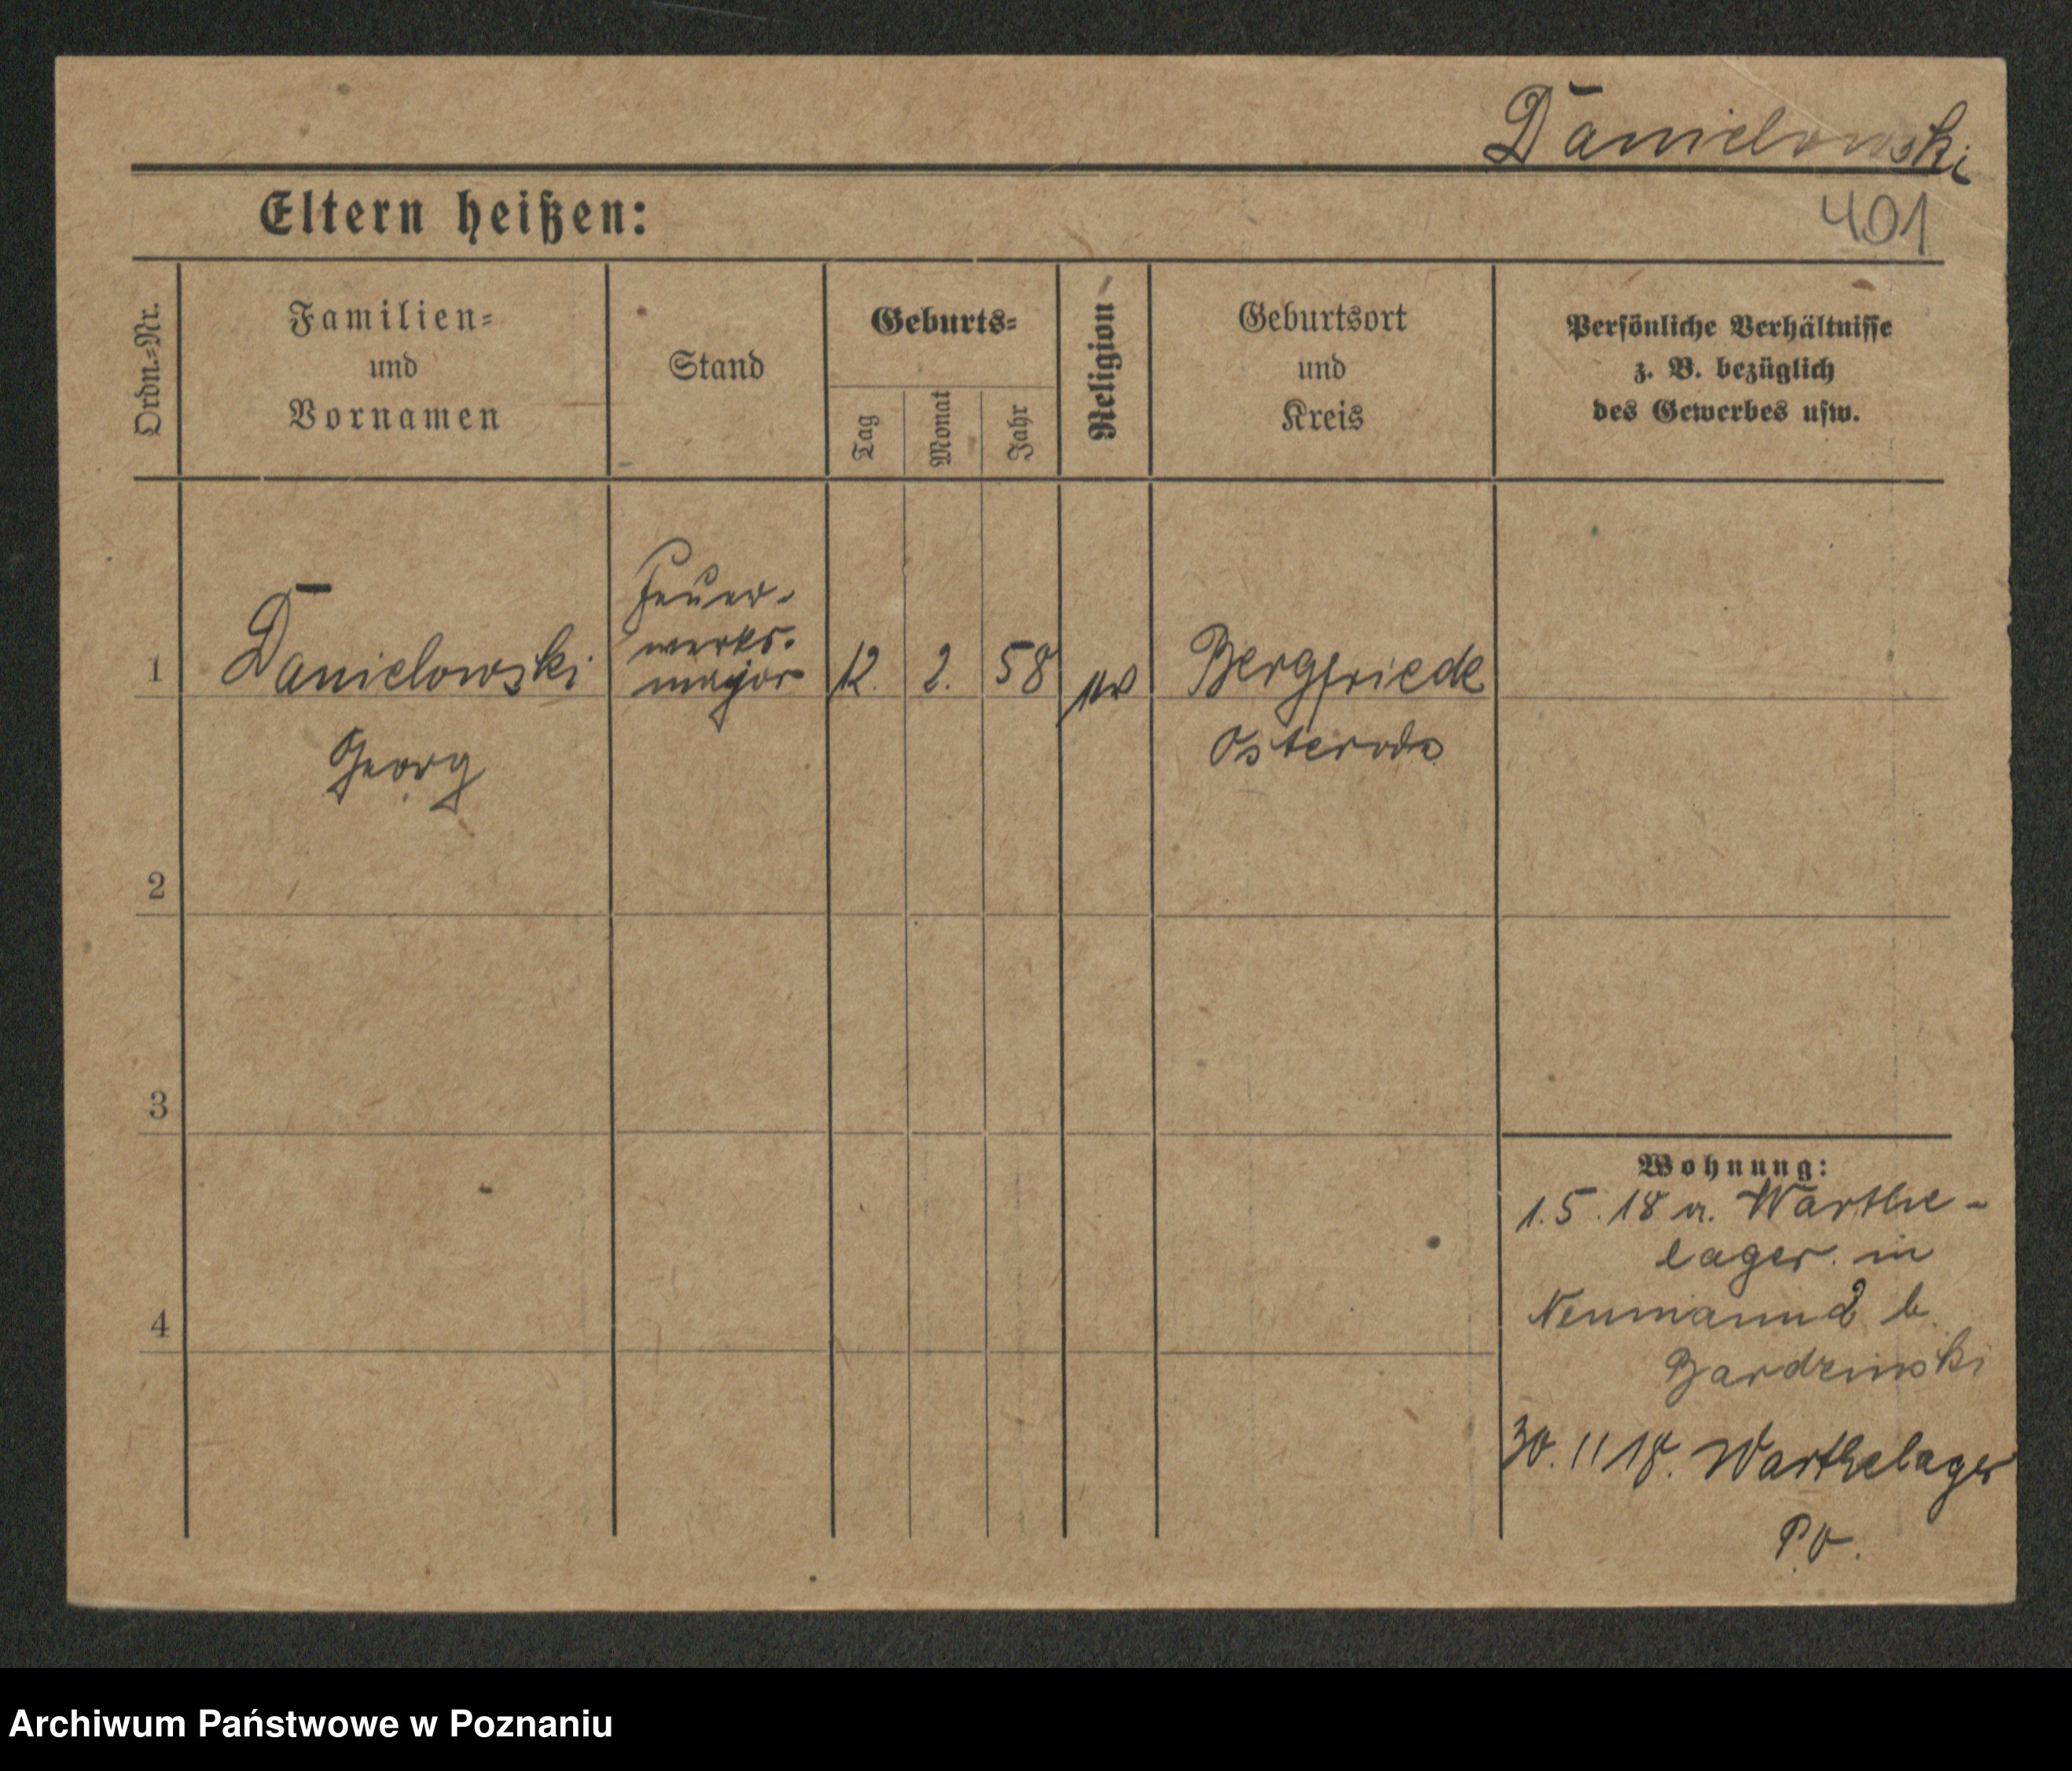 Danielowski
Eltern heißen:
401
Ordn.-Nr.
Familien-
und
Vornamen
Stand
Geburts-
Tag
Monat
Jahr
Religion
Geburtsort
und
Kreis
Persönliche Verhältnisse
z. B. bezüglich
des Gewerbes usw.
1
Danielowski
Georg
Feuer-
werks-
major
12.
2.
58
Bergfriede
Osterode
2
3
4
Wohnung:
1.5.18 v. Warthe-
lager in
Neumann 2 b
Bardzinski
30.11 18. Warthelager